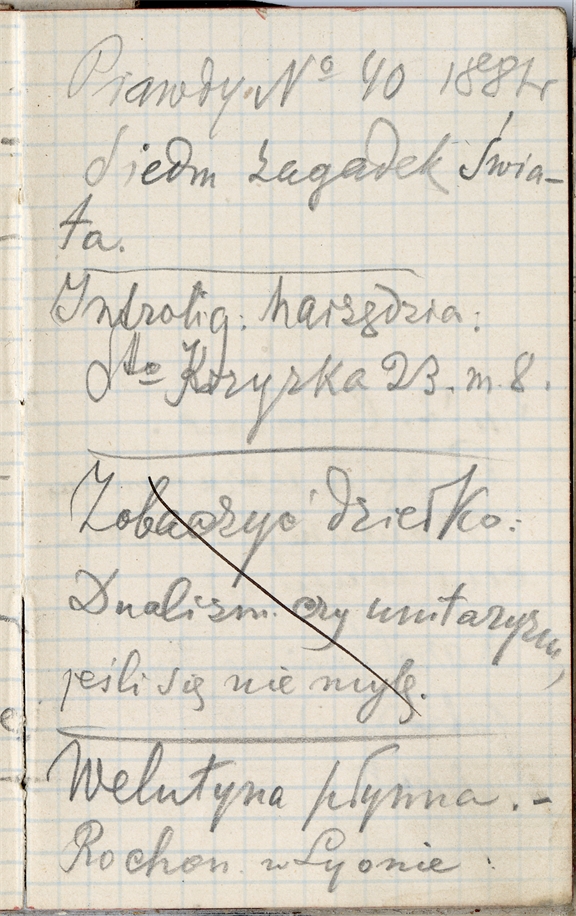 Prawdy. No 40 1882 r
Siedm zagadek świa-
ta.
Introlig: narzędzia:
Sto Krzyzka 23. m. 8.
Zobaczyć dziełko:
Dualizm czy unitaryzm,
jeśli się nie mylę.
Welutyna płynna. -
Rochon w Lyonie: